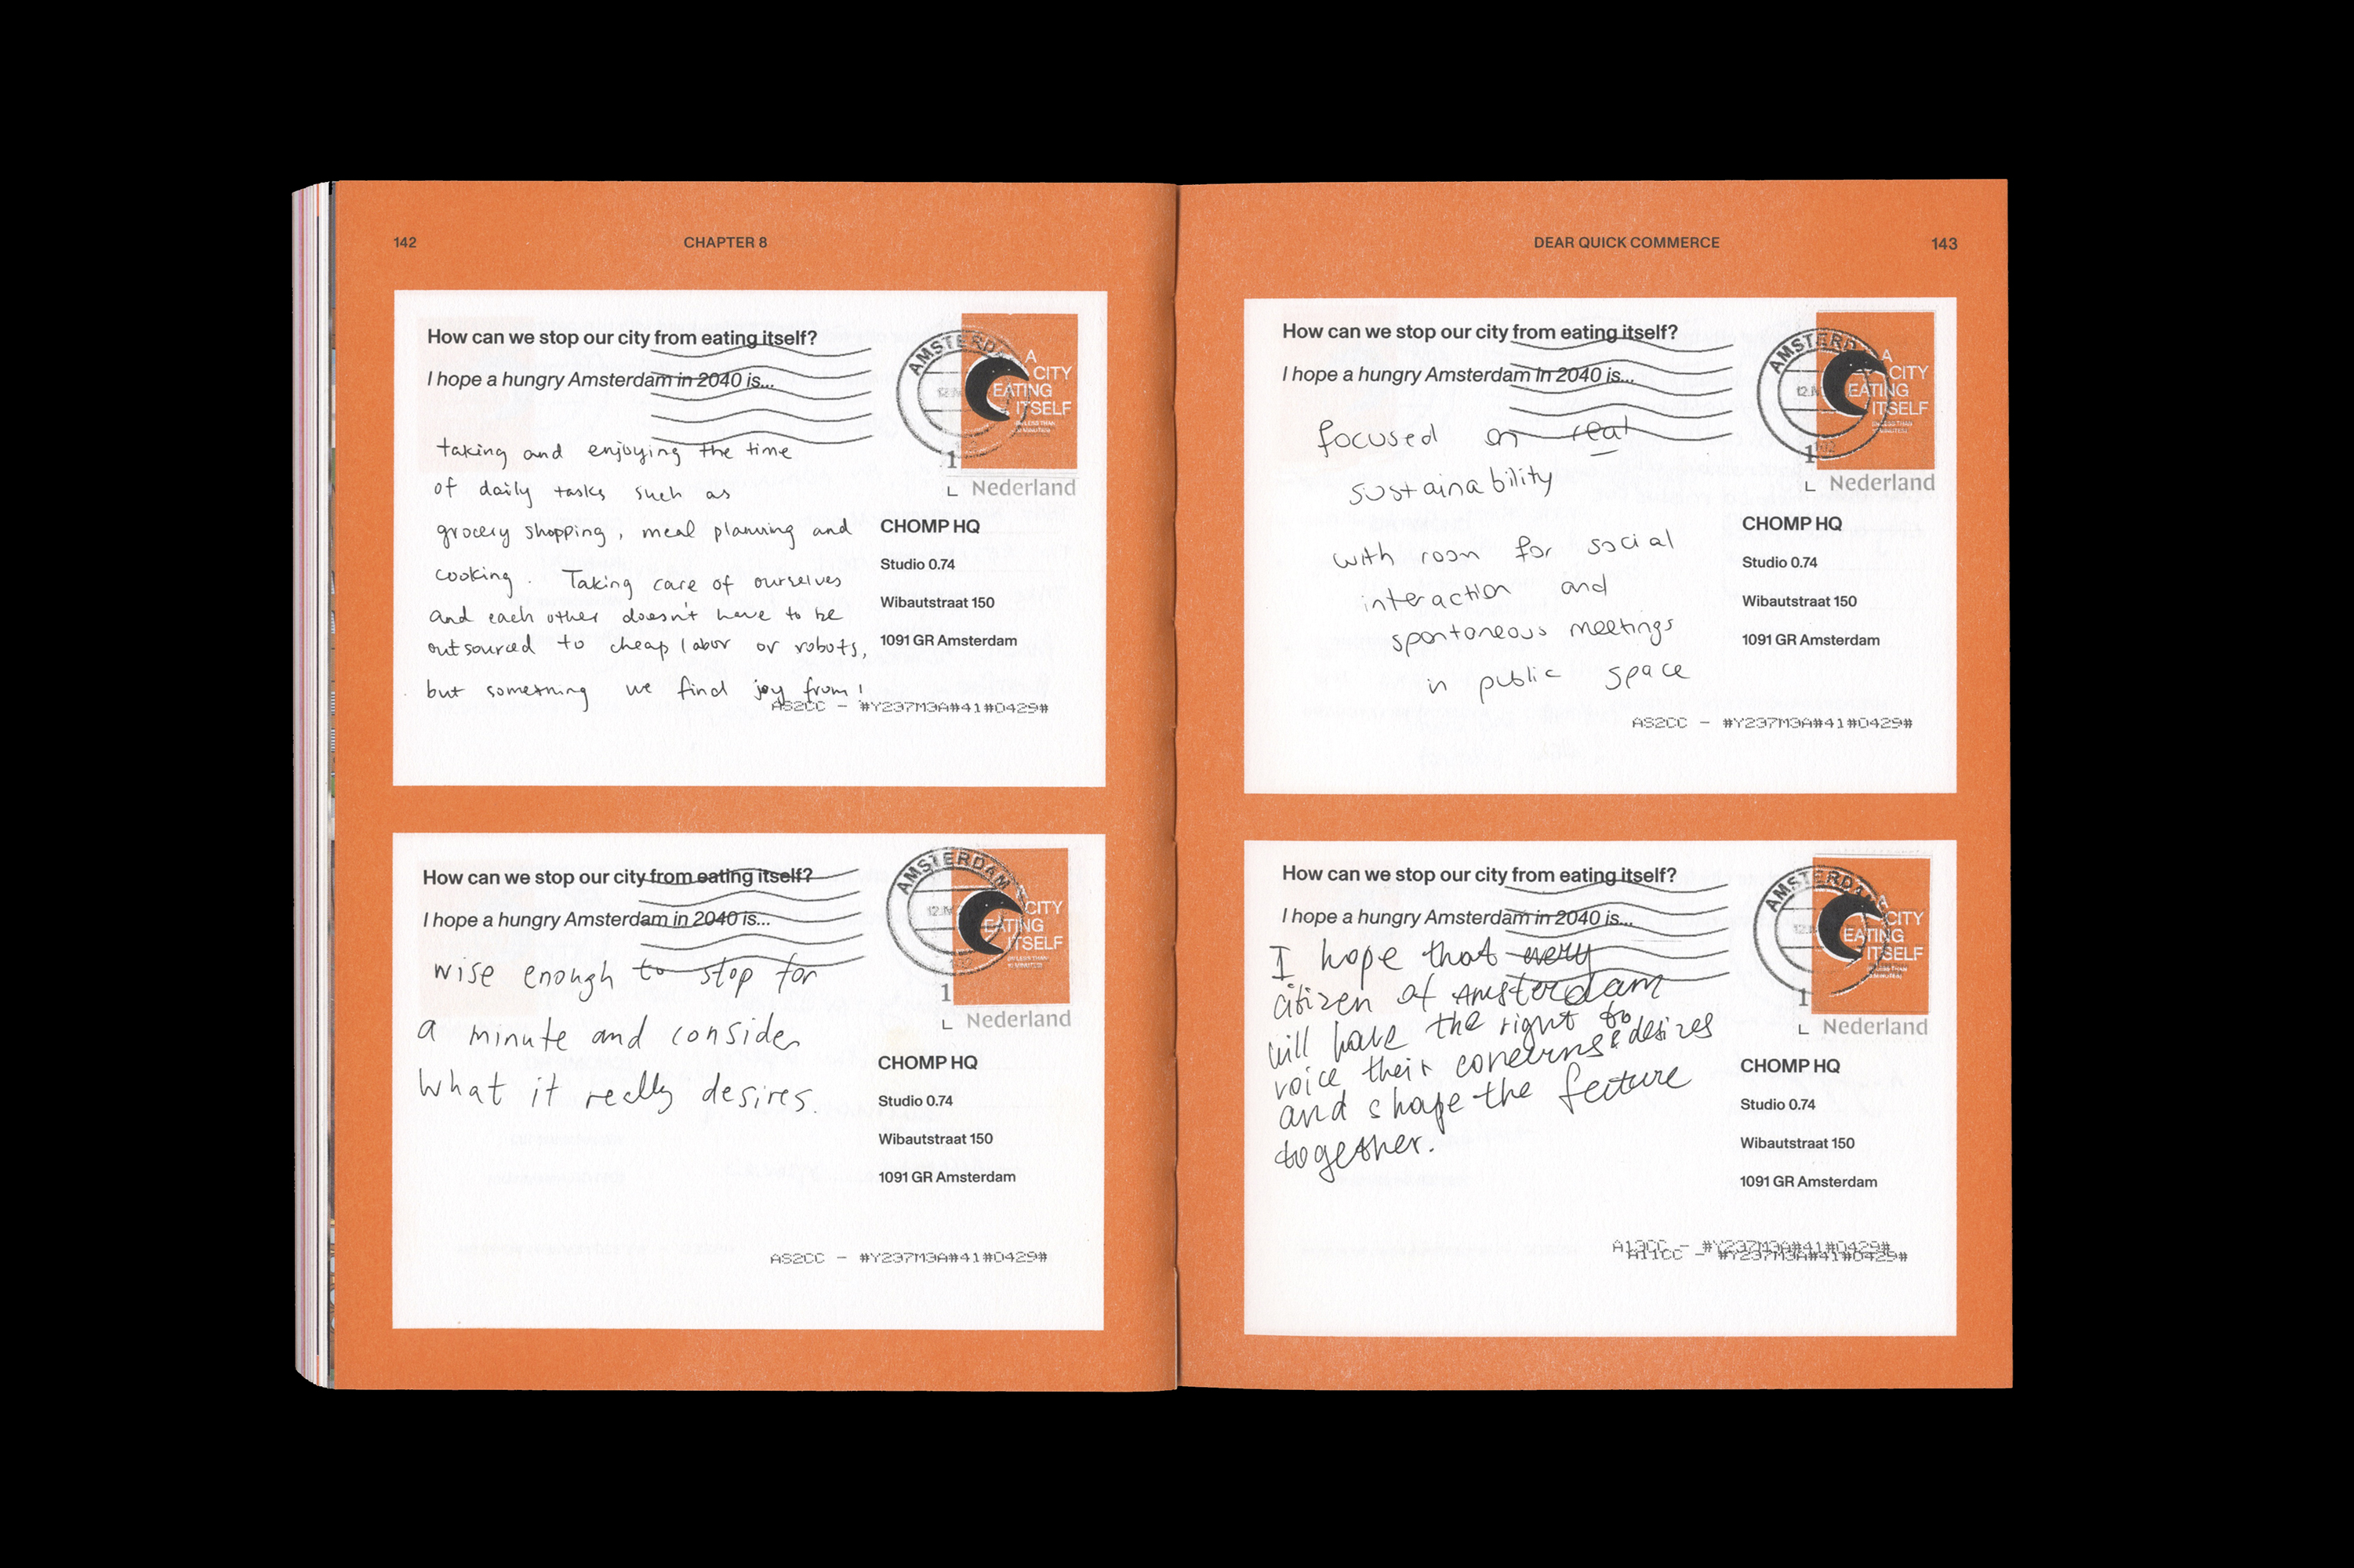 142
CHAPTER 8
How can we stop our city from eating itself?
I hope a hungry Amsterdam in 2040 is...
taking and enjoying the time
of daily tasks such as
grocery shopping, meal planning and
cooking. Taking care of ourselves
and each other doesn't have to be
outsourced to cheap labor or robots,
but something we find joy from!
AMSTERDAM
A
CITY
EATING
ITSELF
1
L Nederland
CHOMP HQ
Studio 0.74
Wibautstraat 150
1091 GR Amsterdam
AS2CC - #Y237M3A#41#0429#
How can we stop our city from eating itself?
I hope a hungry Amsterdam in 2040 is...
wise enough to stop for
a minute and consider
what it really desires.
AMSTERDAM
CITY
EATING
ITSELF
IN LESS THAN
10 MINUTES
1
L Nederland
CHOMP HQ
Studio 0.74
Wibautstraat 150
1091 GR Amsterdam
AS2CC - #Y237M3A#41#0429#
DEAR QUICK COMMERCE
143
How can we stop our city from eating itself?
I hope a hungry Amsterdam in 2040 is...
focused on real
sustainability
with room for social
interaction and
spontaneous meetings
in public space
AMSTERD
A
CITY
EATING
ITSELF
1
L Nederland
CHOMP HQ
Studio 0.74
Wibautstraat 150
1091 GR Amsterdam
AS2CC - #Y237M3A#41#0429#
How can we stop our city from eating itself?
I hope a hungry Amsterdam in 2040 is...
I hope that every
citizen of Amsterdam
will have the right to
voice their concerns & desires
and shape the feature
together.
AMSTERDAM
A
CITY
EATING
ITSELF
1
L Nederland
CHOMP HQ
Studio 0.74
Wibautstraat 150
1091 GR Amsterdam
A11CC - #Y237M3A#41#0429#